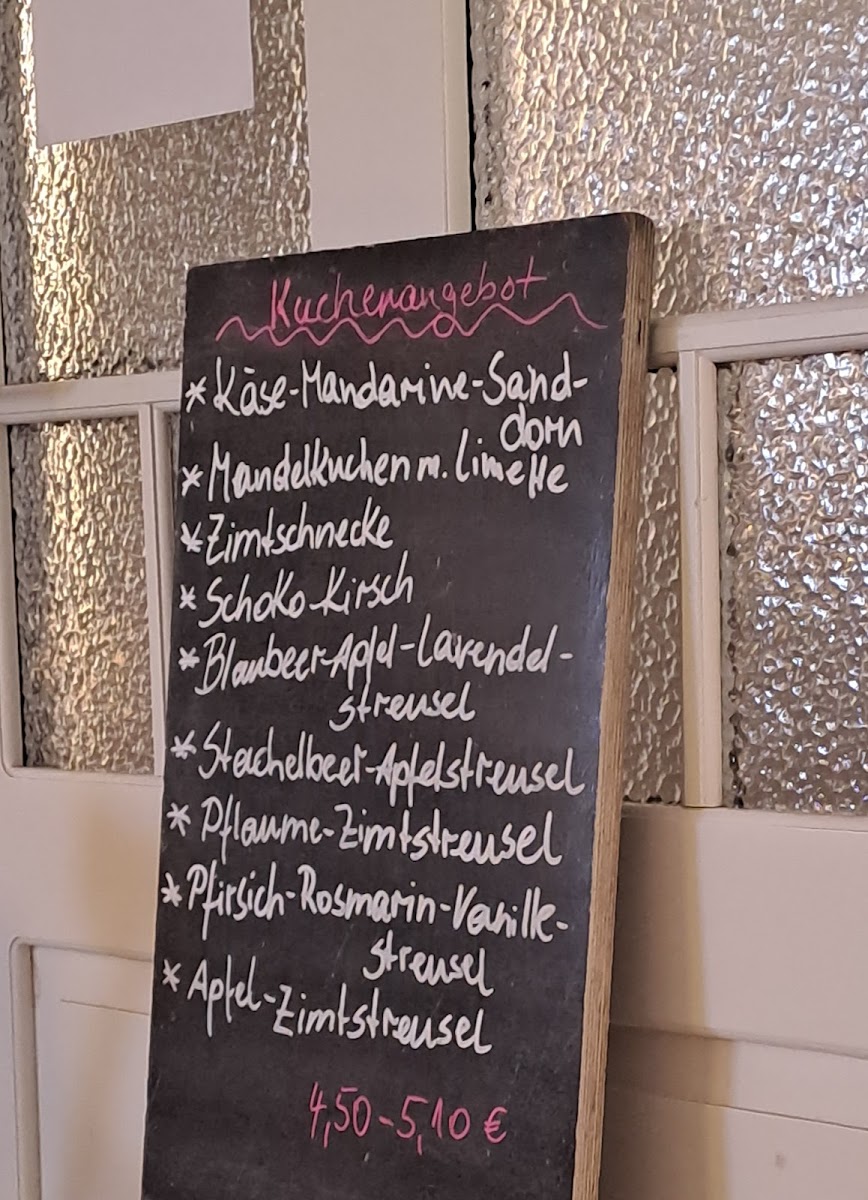 Kuchenangebot
* Käse-Mandarine-Sand-
dorn
* Mandelkuchen m. Limette
* Zimtschnecke
* Schoko-Kirsch
* Blaubeer-Apfel-Lavendel-
streusel
* Stachelbeer-Apfelstreusel
* Pflaume-Zimtstreusel
* Pfirsich-Rosmarin-Vanille-
streusel
* Apfel-Zimtstreusel
4,50-5,10 €